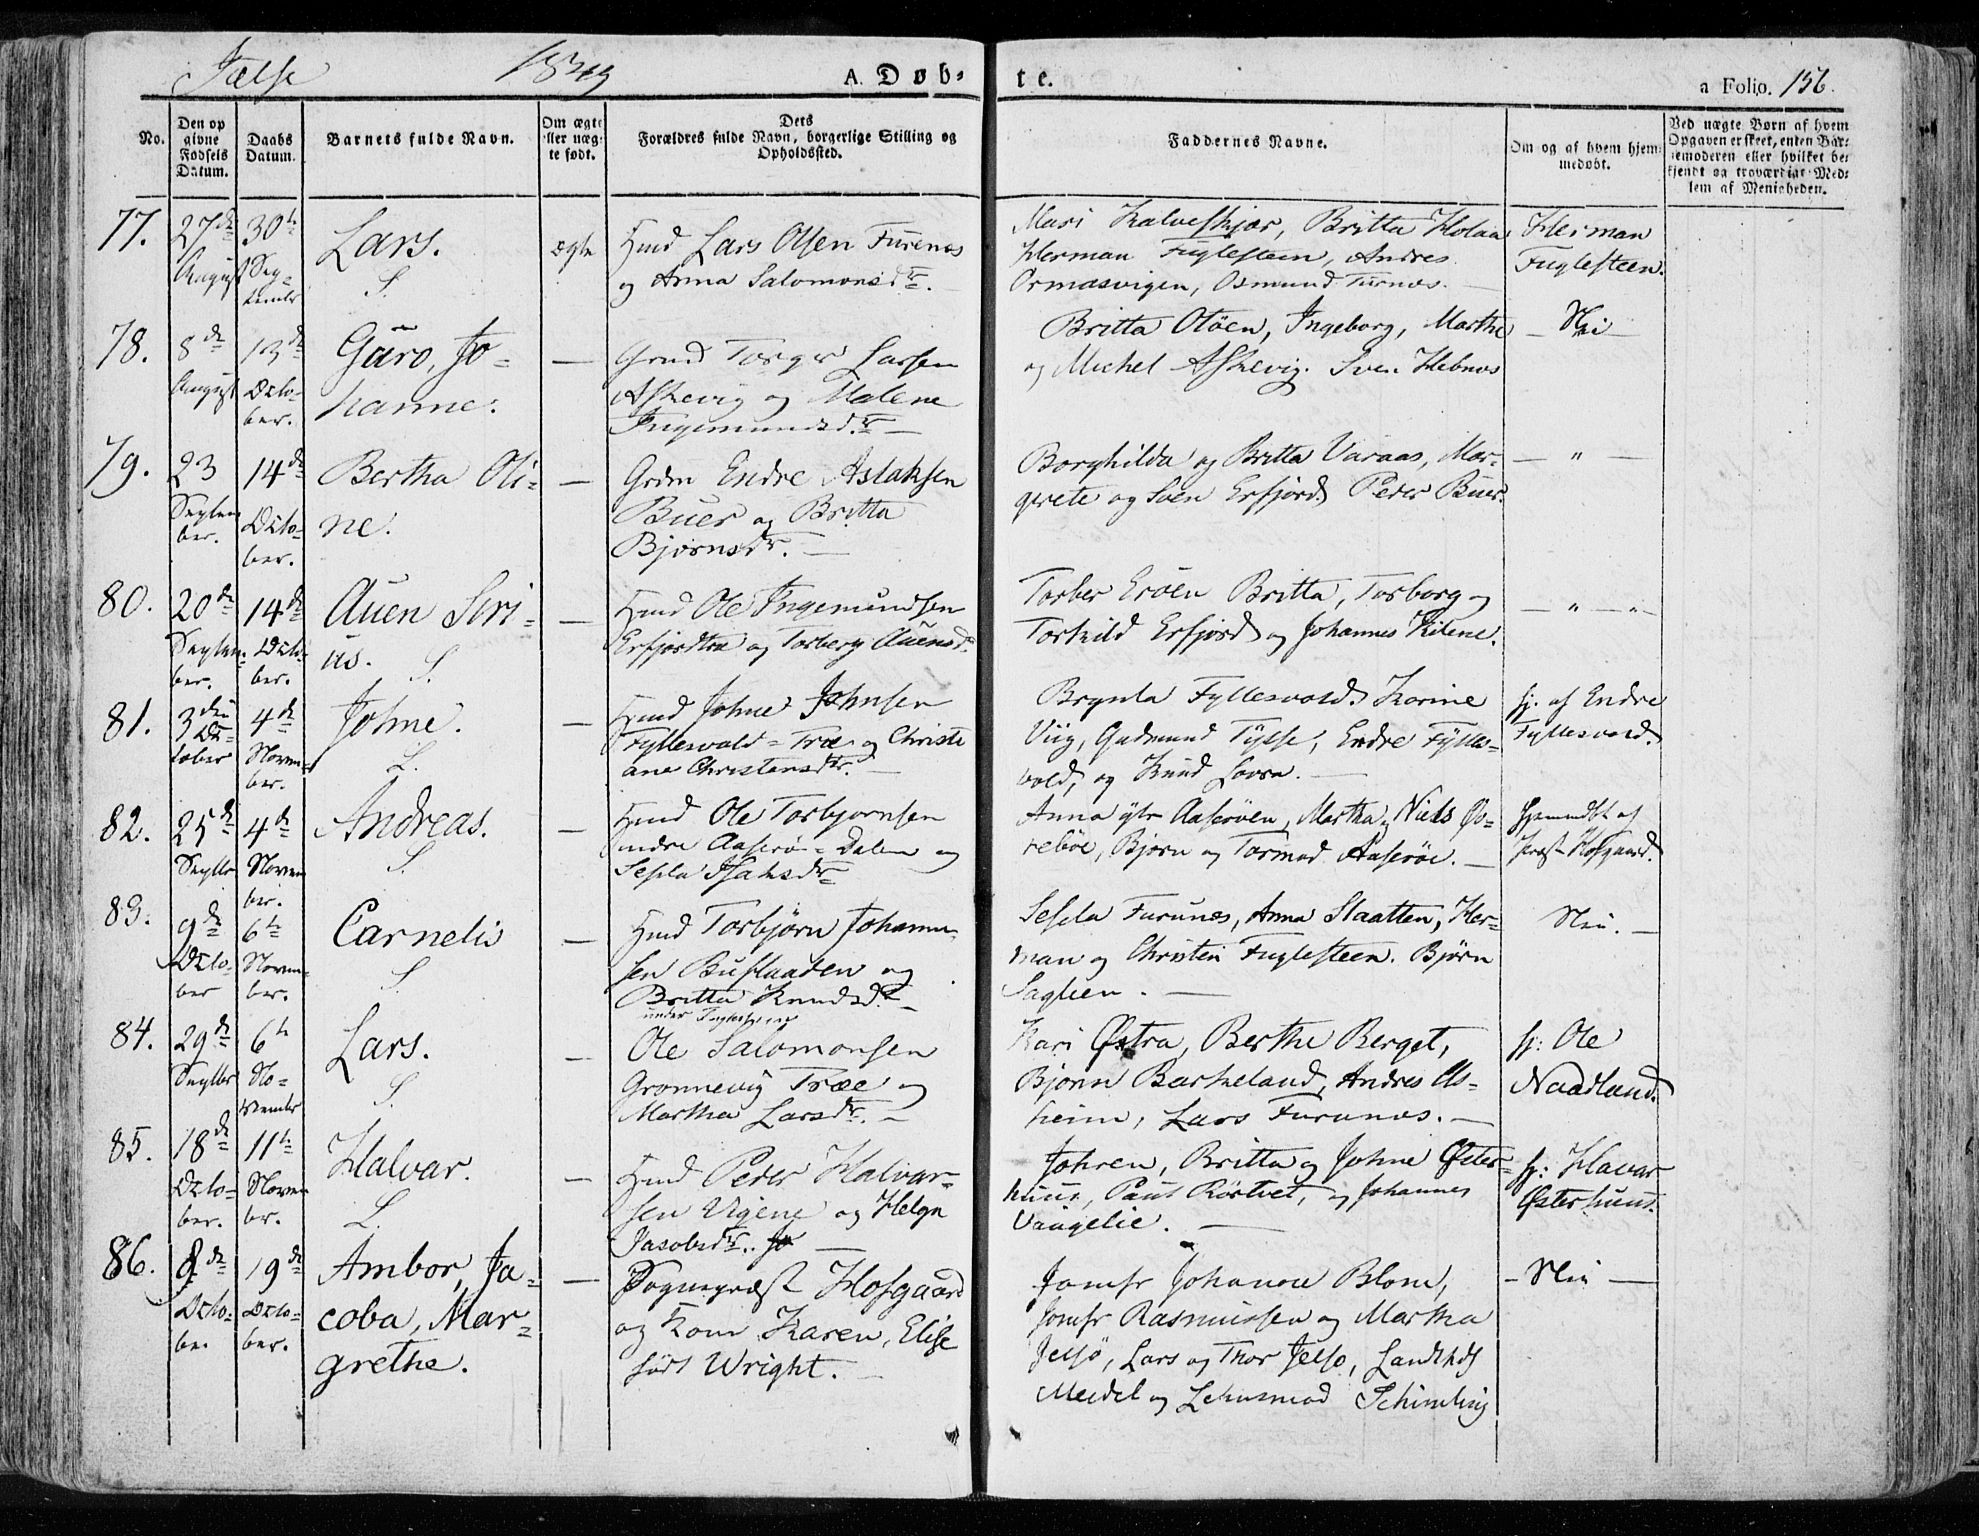 Jælse 1849 A. Døb-te. a Folio. 156.
No.
Den op
givne
Fødsels
Datum.
Daabs
Datum.
Barnets fulde Navn.
Om ægte
eller uæg-
te født.
Dets
Forældres fulde Navn, borgerlige Stilling og
Opholdssted.
Faddernes Navne.
Om og af hvem hjem-
medøbt.
Ved uægte Børn af hvem
Opgaven er skeet, enten Bar-
nemoderen eller hvilket be-
kjendt og troværdigt Med-
lem af Menigheden.
77.
27de
August
30te
Sep-
tembr
Lars.
S.
ægte
Hmd Lars Olsen Furenæs
og Anna Salomonsdtr. —
Mari Kalveskjær, Britta Holan
Herman Fuglesteen, Andres
Ormæsvigen, Osmund Furnæs. —
Herman
Fuglesteen.
78.
8de
August
13de
Octo-
ber.
Guro, Jo-
hanne.
—
Grmd Torger Larsen
Askevig og Malene
Ingemundsdtr. —
Britta Otøen, Ingeborg, Marthe
og Michel Askevig. Sven Hebnes
— Nei —
79.
23
Septem
ber.
14de
Octo-
ber.
Bertha Oli-
ne.
—
Grdm Endre Aslaksen
Buer og Britta
Bjørnsdr. —
Borghilda og Britta Varaas, Mar-
grete og Sven Erfjord, Peder Buer.
— " —
80.
20de
Septem-
ber.
14de
Octo-
ber.
Auen Siri-
us. S.
—
Hmd Ole Ingemundsen
Erfjordtræ og Torberg Auensd.
Torber Erøen Britta, Torborg og
Torkild Erfjord og Johannes Kilene.
— " — " —
81.
3die
Oc-
tober
4de
Novem-
ber.
Johne.
L.
—
Hmd Johne Johnsen
Fyllesvold-Træ og Christi
ane Christensdtr. —
Brynla Fyllesvold, Karine
Viig, Gudmund Tysse, Endre Fylles-
vold, og Knud Lovra. —
hj. af Endre
Fyllesvold.
82.
25de
Septbr
4de
Novem
ber.
Andreas.
S.
—
Hmd Ole Torbjørnsen
indre Aaserø-Dalen og
Sesela Isaksdtr
Anna ytr Aaserøen, Martha, Niels Øv-
rebøe, Bjørn og Tormod Aaserøe. —
Hjemmdbt af
Præst Hofgaard.
83.
9de
Octo-
ber
6te
Novem-
ber.
Carnelis
S.
—
Hmd Torbjørn Johanne-
sen Buslaaden og
Britta Knudsdtr —
under Fuglesteen
Sesela Furunæs, Anna Slaatten, Her-
man og Christen Fuglesteen. Bjørn
Saglien. —
Nei. —
84.
29de
Septbr
6te
No-
vembr
Lars.
S.
—
Ole Salomonsen
Grønnevig Træe og
Martha Larsdtr. —
Kari Østra, Berthe Berget,
Bjørn Barkeland, Andres As-
heim, Lars Furunæs. —
hj: Ole
Naadland.
85.
18de
Octo-
ber.
11te
Novem
ber.
Halvar.
L.
—
Hmd Peder Halvar-
sen Vigene og Helga
Jacobsdtr. —
Johren, Britta og Johne Øster-
huus, Paul Rørtvet, og Johannes
Vaagelie. —
hj: Havar
Østerhuus.
86.
8de
Octo-
ber
19de
Octo-
ber.
Ambor, Ja-
coba, Mar-
grethe.
—
Sognepræst Hofgaard
og Kone Karen, Elise
født Wright. —
Jomfr Johanne Blom,
Jomfr Rasmussen og Martha
Jelsø, Lars og Thor Jelsø, Landhdl
Meidel og Lehnsmad Schimling
— Nei —